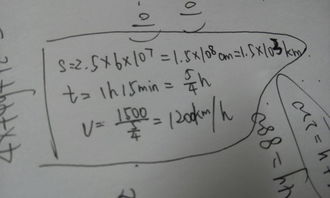 S=2.5×6×10⁷=1.5×10⁸cm=1.5×10³km
t=1h15min=5/4h
V=1500/(5/4)=1200km/h